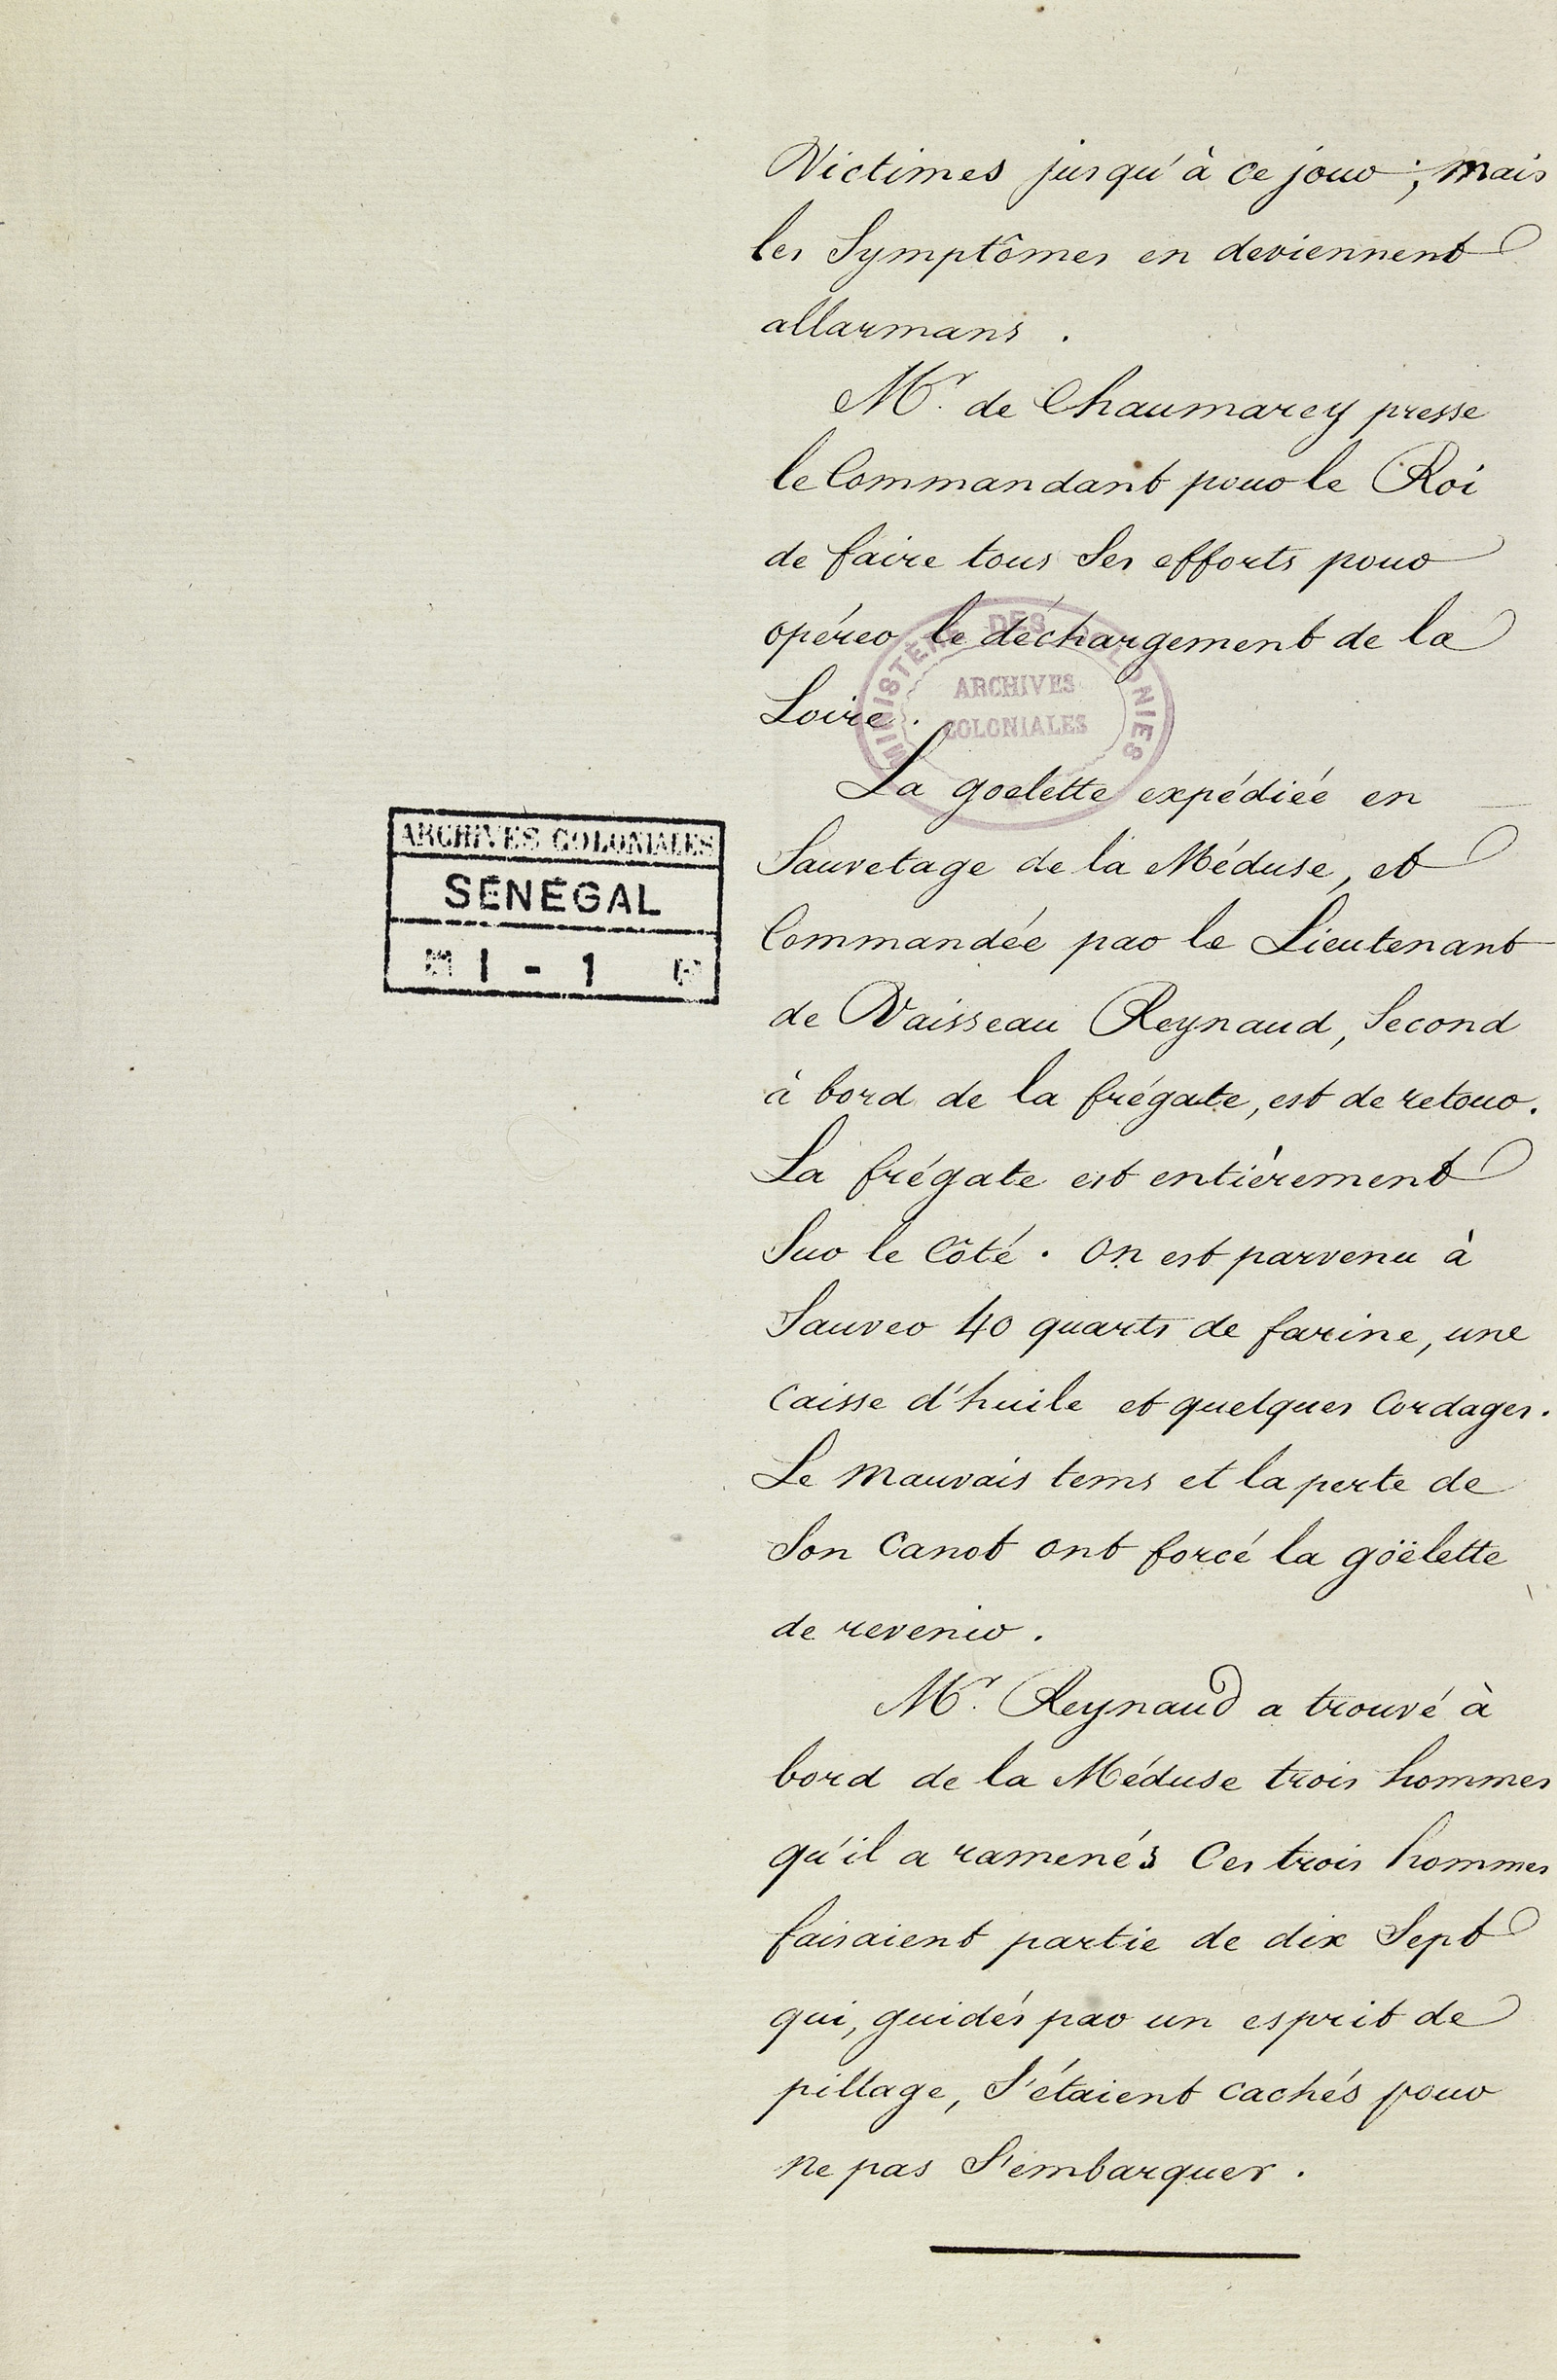 Victimes jusqu'à ce jour ; mais
les Symptômes en deviennent
allarmans .
Mr. de Chaumarey presse
le Commandant pour le Roi
de faire tous Ses efforts pour
opérer le déchargement de la
Loire .
MINISTÈRE DES COLONIES
ARCHIVES
COLONIALES
La goelette expédiéé en
Sauvetage de la Méduse, et
Commandée par le Lieutenant
de Vaisseau Reynaud, Second
à bord de la frégate, est de retour.
La frégate est entièrement
Sur le Côté . On est parvenu à
Sauver 40 quarts de farine, une
Caisse d'huile et quelques Cordages.
Le mauvais tems et la perte de
Son Canot ont forcé la göëlette
de revenir .
Mr. Reynaud a trouvé à
bord de la Méduse trois hommes
qu'il a ramenés Ces trois hommes
faisaient partie de dix Sept
qui, guidés par un esprit de
pillage, S'étaient cachés pour
ne pas S'embarquer .
ARCHIVES COLONIALES
SÉNÉGAL
1 - 1